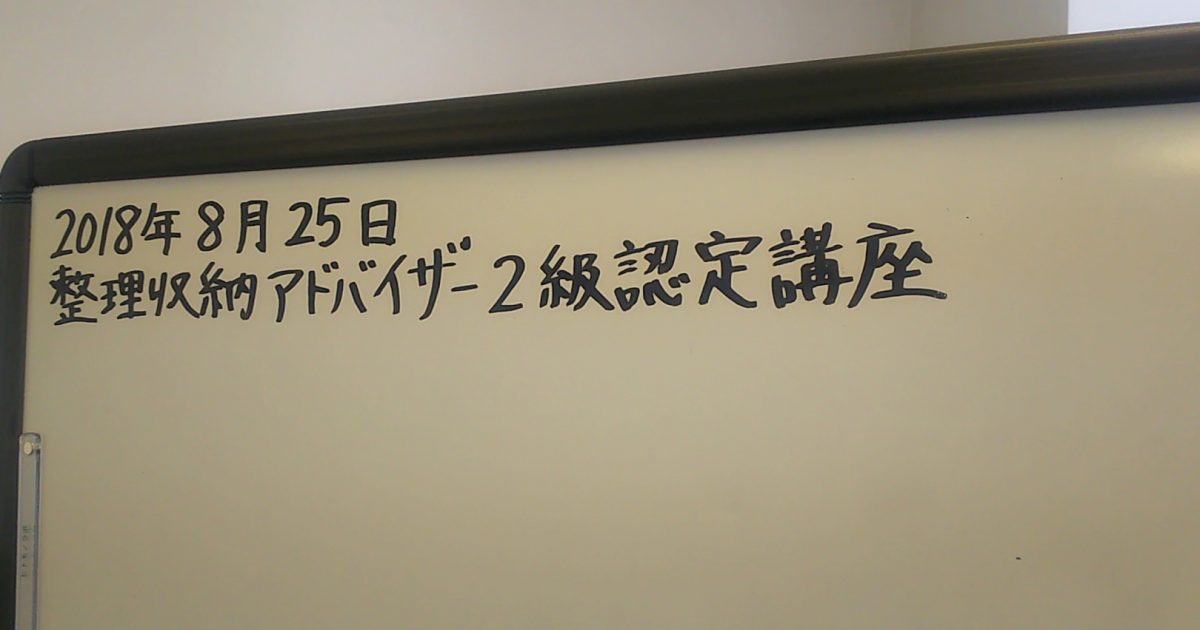 2018年8月25日
整理収納アドバイザー2級認定講座